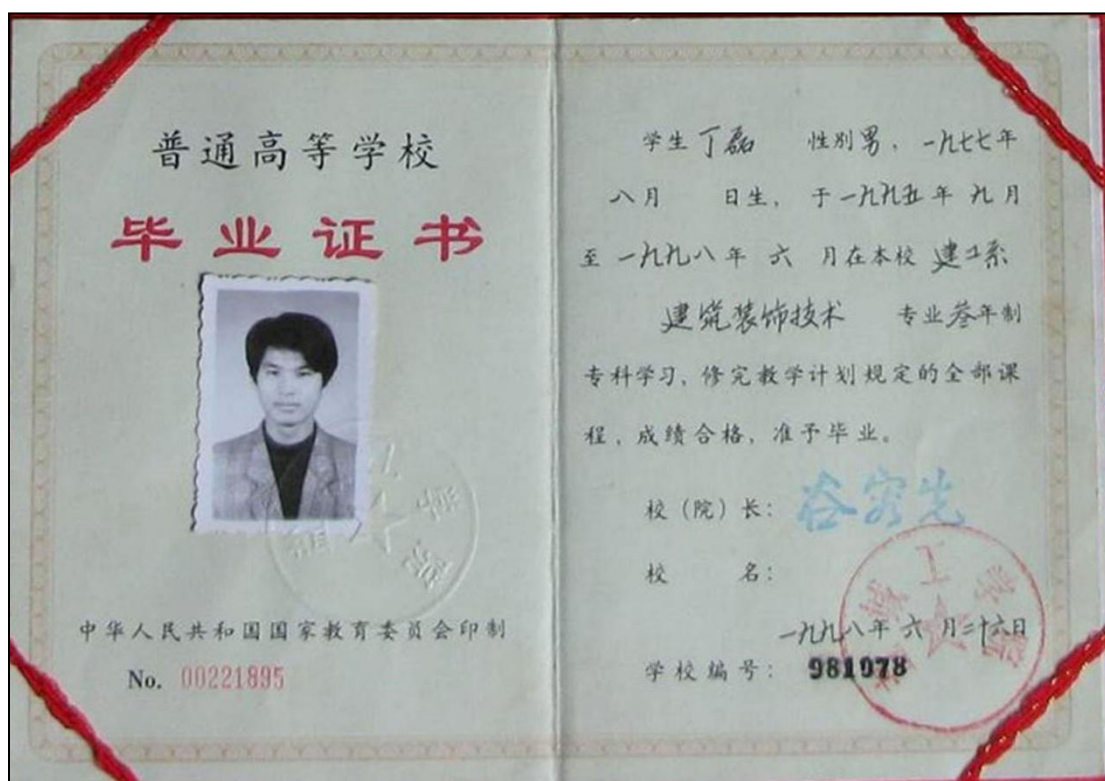 普通高等学校
毕业证书
中华人民共和国国家教育委员会印制
No. 00221895
学生丁磊 性别男，一九七七年
八月 日生，于一九九五年九月
至一九九八年 六 月在本校 建工系
建筑装饰技术 专业叁年制
专科学习，修完教学计划规定的全部课
程，成绩合格，准予毕业。
校（院）长：
校 名：
一九九八年 六 月二十六日
学校编号： 981078